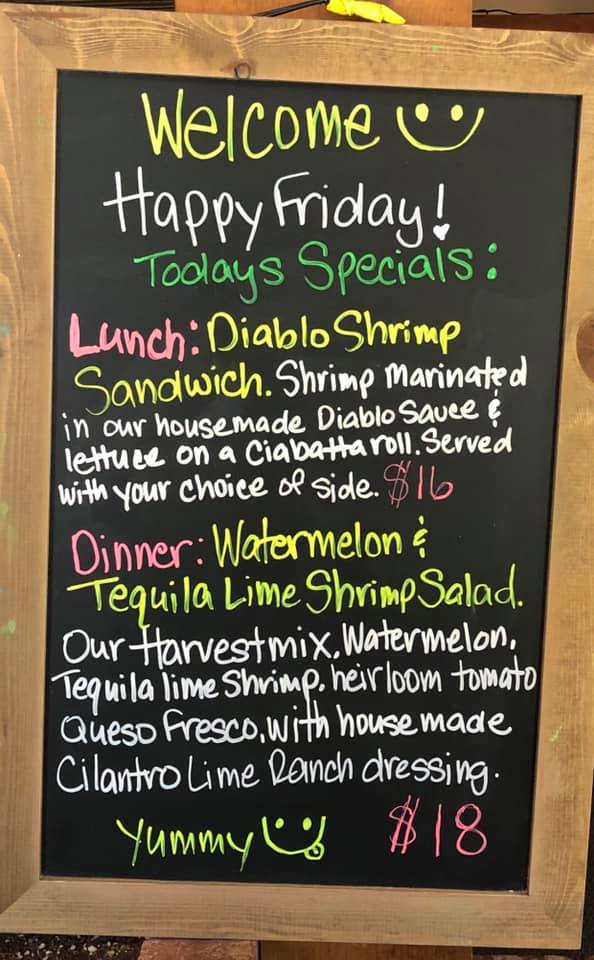 Welcome
Happy Friday!
Todays Specials:
Lunch: Diablo Shrimp
Sandwich. Shrimp Marinated
in our housemade Diablo Sauce &
lettuce on a Ciabatta roll. Served
with your choice of side. $16
Dinner: Watermelon &
Tequila Lime Shrimp Salad.
Our Harvest mix, Watermelon,
Tequila lime Shrimp, heirloom tomato
Queso Fresco, with house made
Cilantro Lime Ranch dressing.
Yummy $18